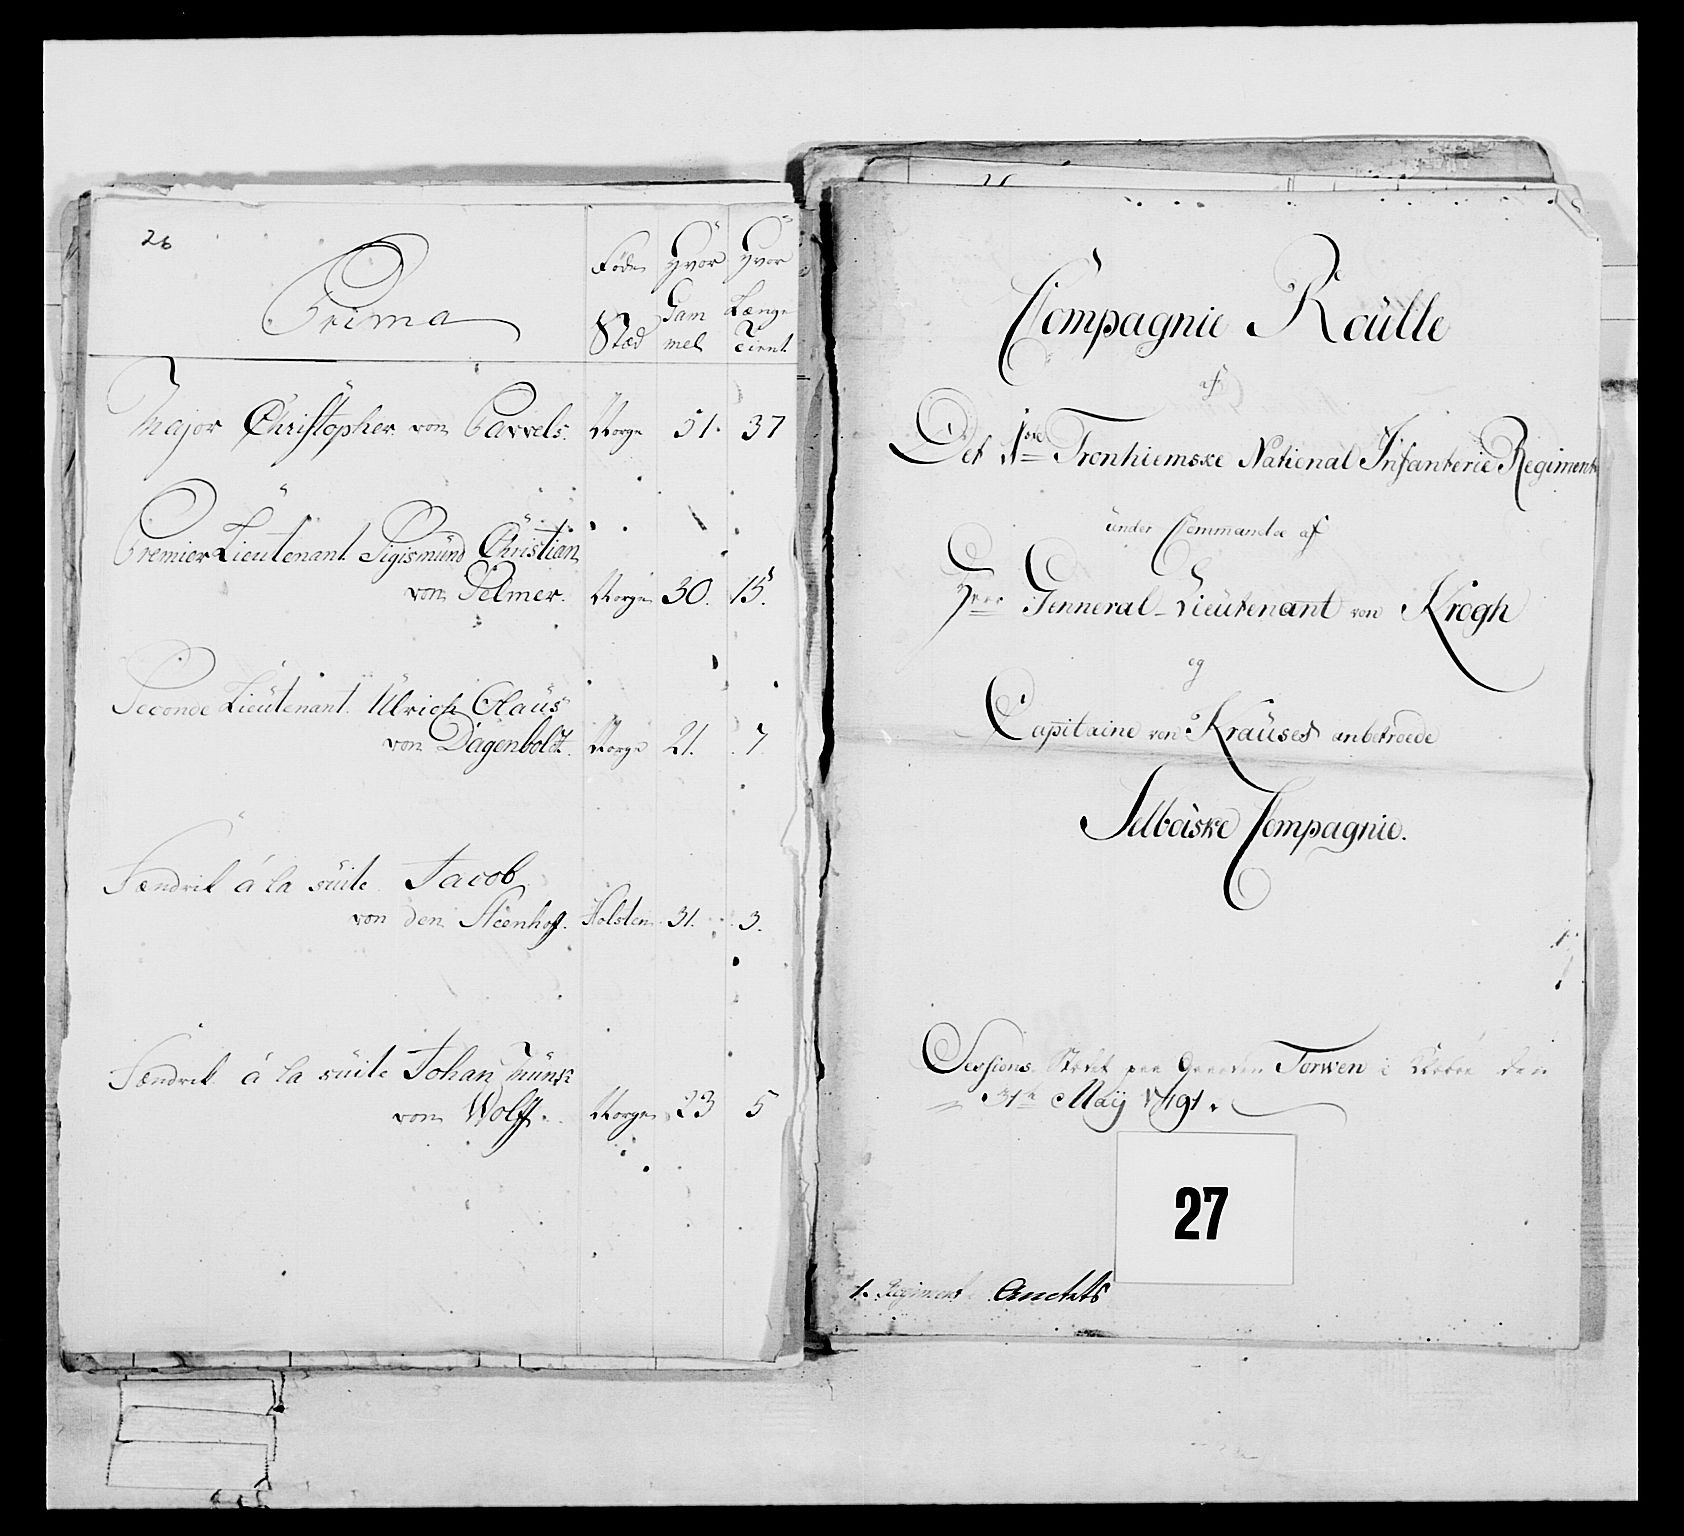 26
Prima
Føde Stæd
Hvor Gam mel
Hvor Længe Tient
Major Christopher von Parrels. Norge 51. 37
Premier Lieutenant Sigismünd Christian
von Pelmer. Norge 30. 15.
Seconde Lieütenant Ulrich Claüs
von Dagenboldt. Norge 21. 7
Fændrik á la süite Jacob
von den Steenhoff. Holsten 31. 3.
Fændrik á la süite Johan Münk
von Wolff. Norge 23 5
Compagnie Roülle
af
Det 1ste Tronhiemske National Infanterie Regiment
ünder Commando af
Herr Genneral-Lieutenant von Krogh
og
Capitaine von Kraüses anbetroede
Selboiske Compagnie.
Sessions Stædet paa Gaarden Torwen i den
31te Maÿ 1791.
27
1. Regiment